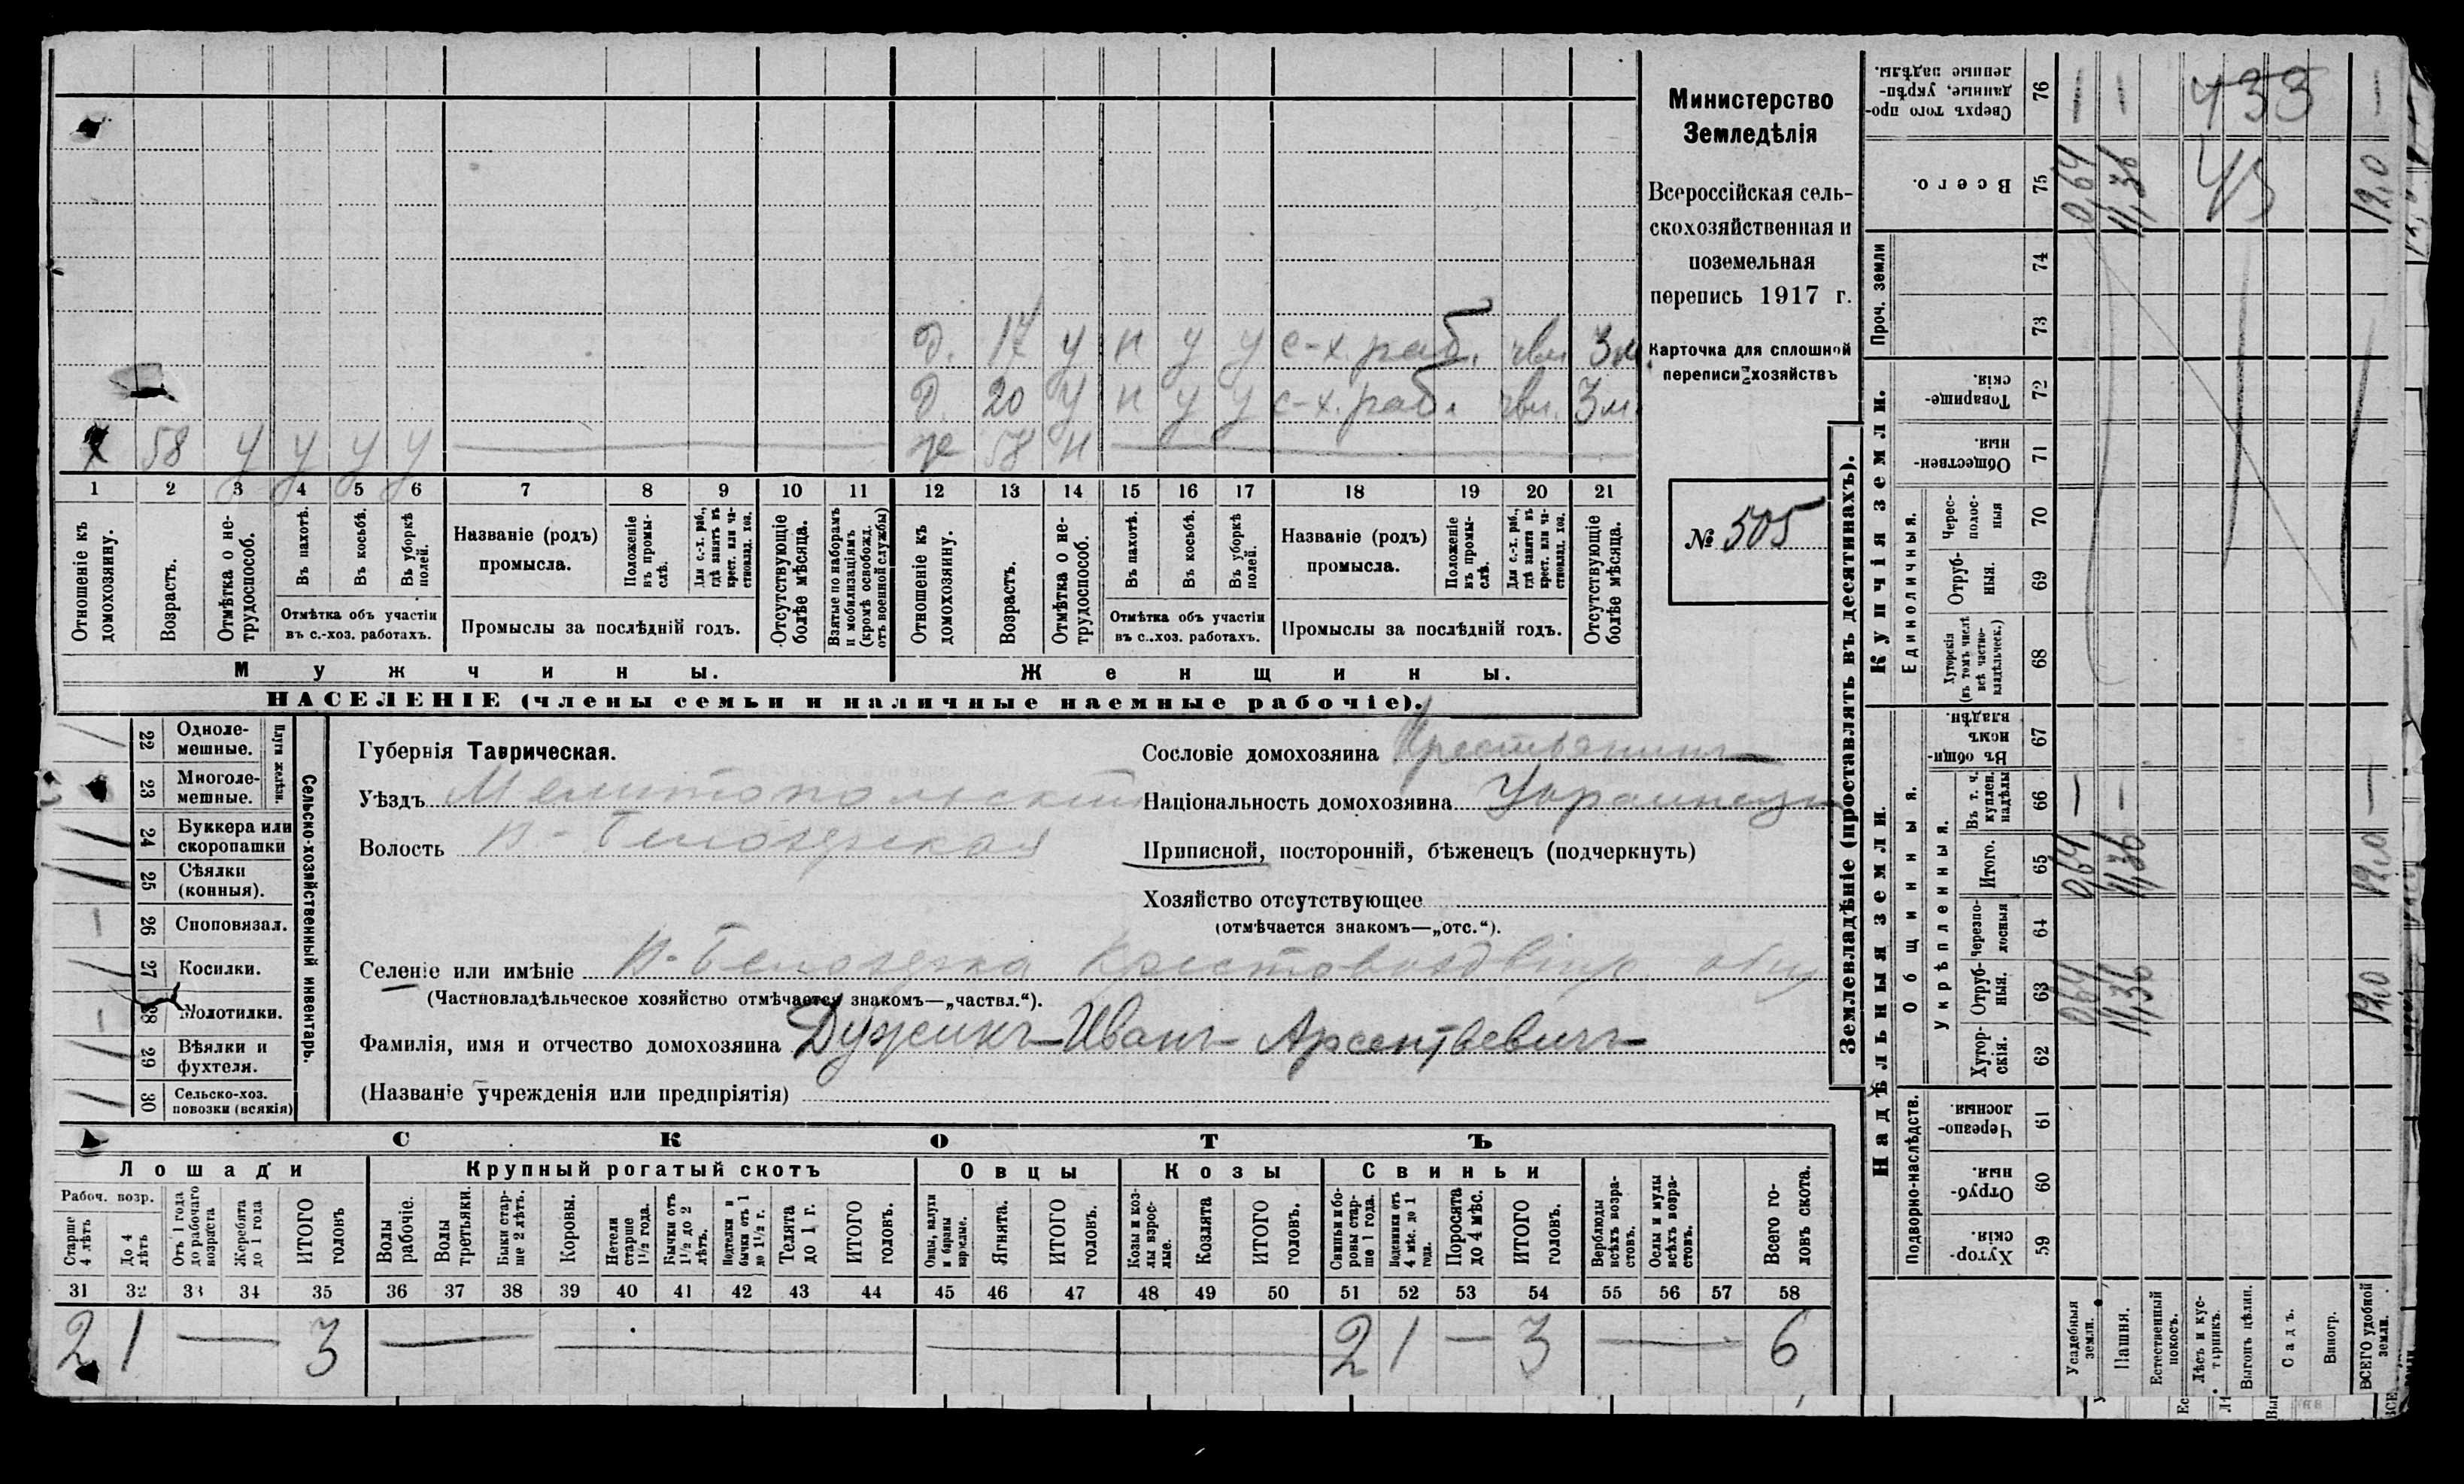 д. 17 у н у у с-х. раб. чвл 3 м.
д. 20 у н у у с-х. раб. чвл. 3 м.
х 58 у у у у — ж 58 н —
1 2 3 4 5 6 7 8 9 10 11 12 13 14 15 16 17 18 19 20 21
Отношеніе къ домохозяину.
Возрастъ.
Отмѣтка о нетрудоспособ.
Въ пахотѣ.
Въ косьбѣ.
Въ уборкѣ полей.
Отмѣтка объ участіи
въ с.-хоз. работахъ.
Названіе (родъ)
промысла.
Положеніе въ промыслѣ.
Для с.-х. раб., гдѣ занятъ въ крест. или частновлад. хоз.
Промыслы за послѣдній годъ.
Отсутствующіе болѣе мѣсяца.
Взятые по наборамъ и мобилизаціямъ (кромѣ освобожд. отъ военной службы)
Отношеніе къ домохозяину.
Возрастъ.
Отмѣтка о нетрудоспособ.
Въ пахотѣ.
Въ косьбѣ.
Въ уборкѣ полей.
Отмѣтка объ участіи
въ с.-хоз. работахъ.
Названіе (родъ)
промысла.
Положеніе въ промыслѣ.
Для с.-х. раб., гдѣ занята въ крест. или частновлад. хоз.
Промыслы за послѣдній годъ.
Отсутствующіе болѣе мѣсяца.
Мужчины.
Женщины.
НАСЕЛЕНІЕ (члены семьи и наличные наемные рабочіе).
Министерство
Земледѣлія
Всероссійская сель-
скохозяйственная и
поземельная
перепись 1917 г.
Карточка для сплошной
переписи хозяйствъ
№ 505
22 Одноле-
мешные.
23 Многоле-
мешные.
Плуги желѣзн.
24 Буккера или
скоропашки
25 Сѣялки
(конныя).
26 Споповязал.
27 Косилки.
28 Молотилки.
29 Вѣялки и
фухтеля.
30 Сельско-хоз.
повозки (всякія)
Сельско-хозяйственный инвентарь.
Губернія Таврическая.
Уѣздъ Мелитопольскій
Волость В-Белозерская
Селеніе или имѣніе В-Белозерка Крестовоздвиж. общ
(Частновладѣльческое хозяйство отмѣчается знакомъ—„частвл.“).
Фамилія, имя и отчество домохозяина Дужикъ Иванъ Арсентьевичъ
(Названіе учрежденія или предпріятія)
Сословіе домохозяина Крестьянинъ
Національность домохозяина Украинецъ
Приписной, посторонній, бѣженецъ (подчеркнуть)
Хозяйство отсутствующее
(отмѣчается знакомъ—„отс.“).
СКОТЪ
Лошади
Рабоч. возр.
Старше 4 лѣтъ
До 4 лѣтъ
Отъ 1 года до рабочаго возраста
Жеребята до 1 года
ИТОГО головъ
Крупный рогатый скотъ
Волы рабочіе.
Волы третьяки.
Быки старше 2 лѣтъ.
Коровы.
Нетели старше 1½ года.
Бычки отъ 1½ до 2 лѣтъ.
Подтелки и бычки отъ 1 до 1½ г.
Телята до 1 г.
ИТОГО головъ.
Овцы
Овцы, валухи и бараны взрослые.
Ягнята.
ИТОГО головъ.
Козы
Козы и козлы взрослые.
Козлята
ИТОГО головъ.
Свиньи
Свиньи и боровы старше 1 года.
Подсвинки отъ 4 мѣс. до 1 года.
Поросята до 4 мѣс.
ИТОГО головъ.
Верблюды всѣхъ возрастовъ.
Ослы и мулы всѣхъ возрастовъ.
Всего головъ скота.
31 32 33 34 35 36 37 38 39 40 41 42 43 44 45 46 47 48 49 50 51 52 53 54 55 56 57 58
2 1 — 3 — — — 2 1 — 3 — 6
Землевладѣніе (проставлять въ десятинахъ).
Надѣльныя земли.
Подворно-наслѣдств.
Хуторскія. 59
Отрубныя. 60
Черезполосныя. 61
Общинныя.
Укрѣпленныя.
Хуторскія. 62
Отрубныя. 63
Черезполосныя 64
Итого. 65
Въ т. ч. куплен. надѣлы 66
Въ общинномъ владѣн. 67
Купчія земли.
Единоличныя.
Хуторскія (въ томъ числѣ всѣ частновладѣльческ.) 68
Отрубныя. 69
Чресполосныя 70
Общественныя. 71
Товарищескія. 72
Проч. земли
73
74
Всего. 75
Сверхъ того проданные, укрѣпленные надѣлы. 76
Усадебныя земли.
0,64 0,64 — 0,64 —
Пашня.
11,36 11,36 — 11,36 —
Естественный покосъ.
Лѣсъ и кустарникъ.
Выгонъ цѣлин.
Садъ.
Виногр.
ВСЕГО удобной земли.
12,0 12,0 — 12,0 —
433
43